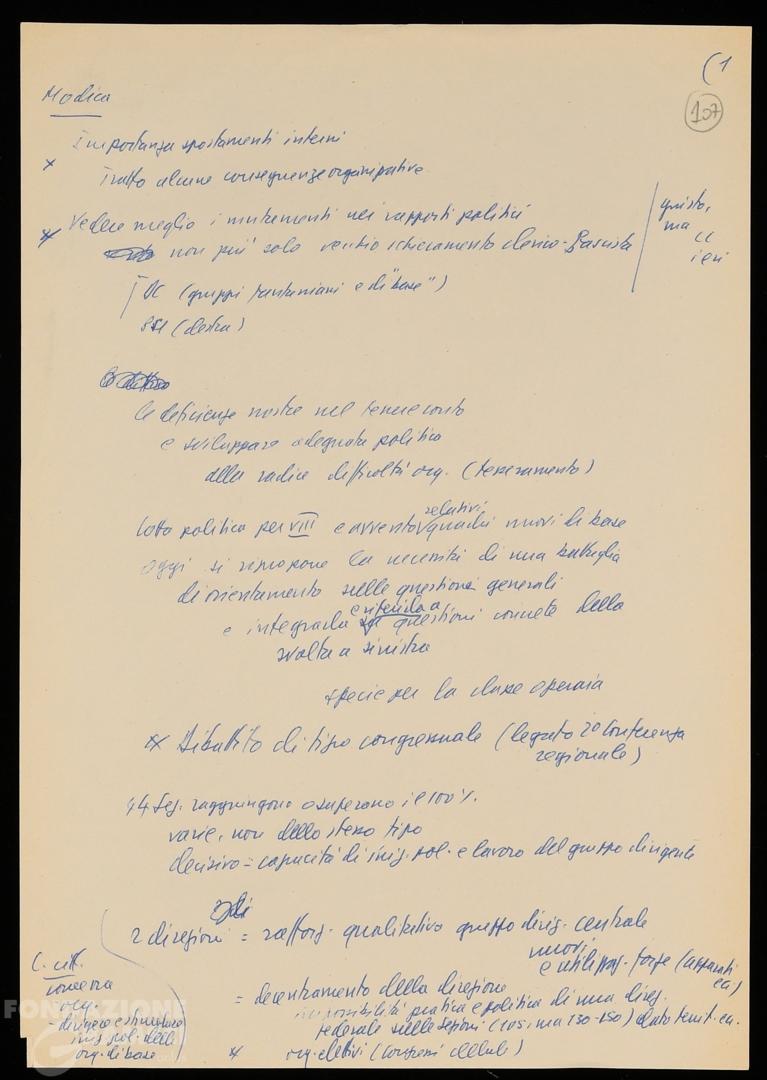 (1
107
Modica
Importanza spostamenti interni
x Tratto alcune conseguenze organizzative
x Vedere meglio i mutamenti nei rapporti politici
non più solo vecchio schieramento clerico-fascista
giusto,
ma
ieri
DC (gruppi fanfaniani e di "base")
PSI (destra)
le deficienze nostre nel tenere conto
e sviluppare adeguata politica
alla radice difficoltà org. (tesseramento)
lotta politica per VIII e avvento quadri nuovi di base
relativi
oggi si ripropone la necessità di una battaglia
di orientamento sulle questioni generali
e integrarla questioni concrete della
e riferirla a
svolta a sinistra
specie per la classe operaia
x Dibattito di tipo congressuale (legato 2a Conferenza
regionale)
44 sez. raggiungono o superano il 100%.
varie, non dello stesso tipo
decisivo = capacità di iniz. pol. e lavoro del gruppo dirigente
2 direzioni = rafforz. qualitativo gruppo dirig. centrale
e utilizzaz. forze (apparati
nuovi
ecc)
= decentramento della direzione
impossibilità pratica e politica di una direz.
federale sulle sezioni (105, ma 130-150)
x org. elettivi
C. citt.
org.
- dirigere e
iniz. pol. delle
org. di base
FONDAZIONE